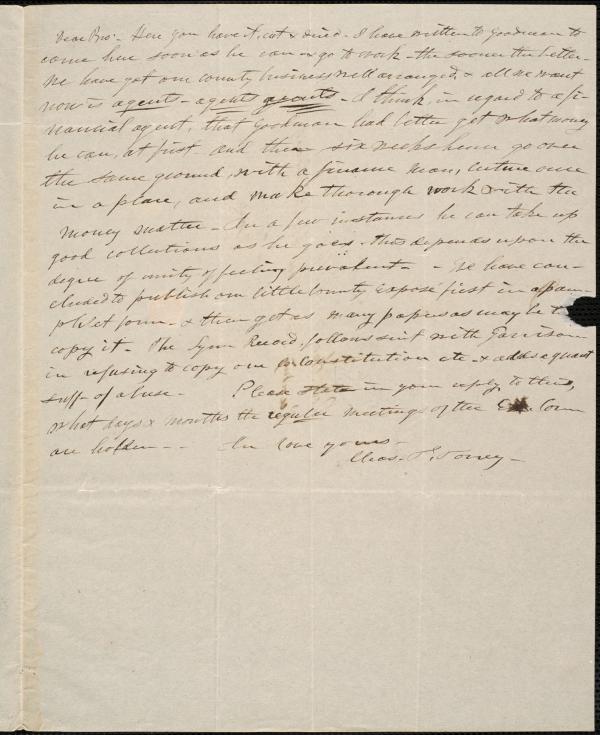 Dear Bro: Here you have it, cut & dried. I have written to Goodman to
come here soon as he can & go to work - the sooner the better.
We have got our county business well arranged, & all we want
now is agents - agents agents - I think, in regard to a fi-
nancial agent, that Goodman had better get what money
he can, at first - and then six weeks hence go over
the same ground, with a finance man, lecture once
in a place, and make thorough work with the
money matter - In a few instances he can take up
good collections as he goes - this depends upon the
degree of unity of feeling prevalent - - We have con-
cluded to publish our little County exposé first in a pam-
phlet form - & then get as many papers as may be to
copy it - The Lynn Record, follows suit with Garrison
in refusing to copy our Constitution etc - & adds a quant
suff - of abuse - Please state in your reply to this,
what days & months the regular meetings of the Com
are holden - - In love yours -
Chas. T. Torrey -